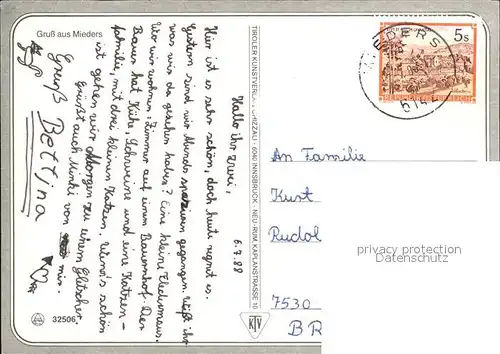 Gruß aus Mieders
6.7.88
Hallo ihr zwei,
Hier ist es sehr schön, doch heute regnet es.
Gestern sind wir Abends spazieren gegangen. Wißt ihr
was wir da gesehen haben? Eine kleine Fledermaus.
Wir wohnen: Zimmer auf einem Bauernhof. Der
Bauer hat Kühe, Schweine und eine Katzen-
familie, mit drei kleinen Katzen. Wenn's schön
ist gehen wir Morgen zu einem Gletscher.
Grüßt auch Minki von mir.
Gruß
Bettina
TIROLER KUNSTVERLAG CHIZZALI · 6040 INNSBRUCK - NEU-RUM, KAPLANSTRASSE 10
KTV
32506
MIEDERS
614
5s
REPUBLIK ÖSTERREICH
An Familie
Kurt
Rudol
7530
BR
privacy protection
Datenschutz